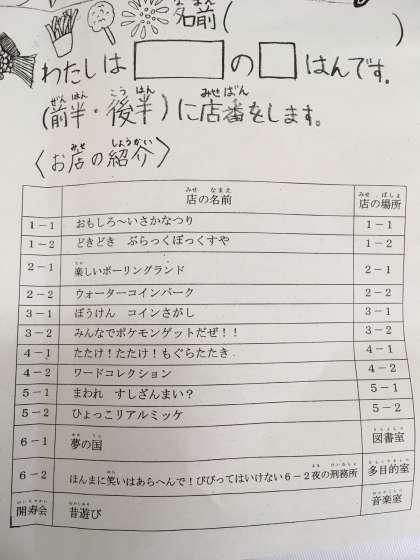 名前(　　　)
なまえ
わたしは　の　はんです。
ぜんはん　こうはん　みせばん
(前半・後半)に店番をします。
みせ　しょうかい
〈お店の紹介〉
みせ　なまえ　みせ　ばしょ
店の名前　店の場所
1－1　おもしろ〜いさかなつり　1－1
1－2　どきどき　ぶらっくぼっくすや　1－2
2－1　楽しいボーリングランド　2－1
2－2　ウォーターコインパーク　2－2
3－1　ぼうけん　コインさがし　3－1
3－2　みんなでポケモンゲットだぜ！！　3－2
4－1　たたけ！たたけ！もぐらたたき　4－1
4－2　ワードコレクション　4－2
5－1　まわれ　すしざんまい？　5－1
5－2　ひょっこリアルミッケ　5－2
6－1　夢の国　図書室
6－2　ほんまに笑いはあらへんで！びびってはいけない6－2夜の刑務所　多目的室
開寿会　昔遊び　音楽室